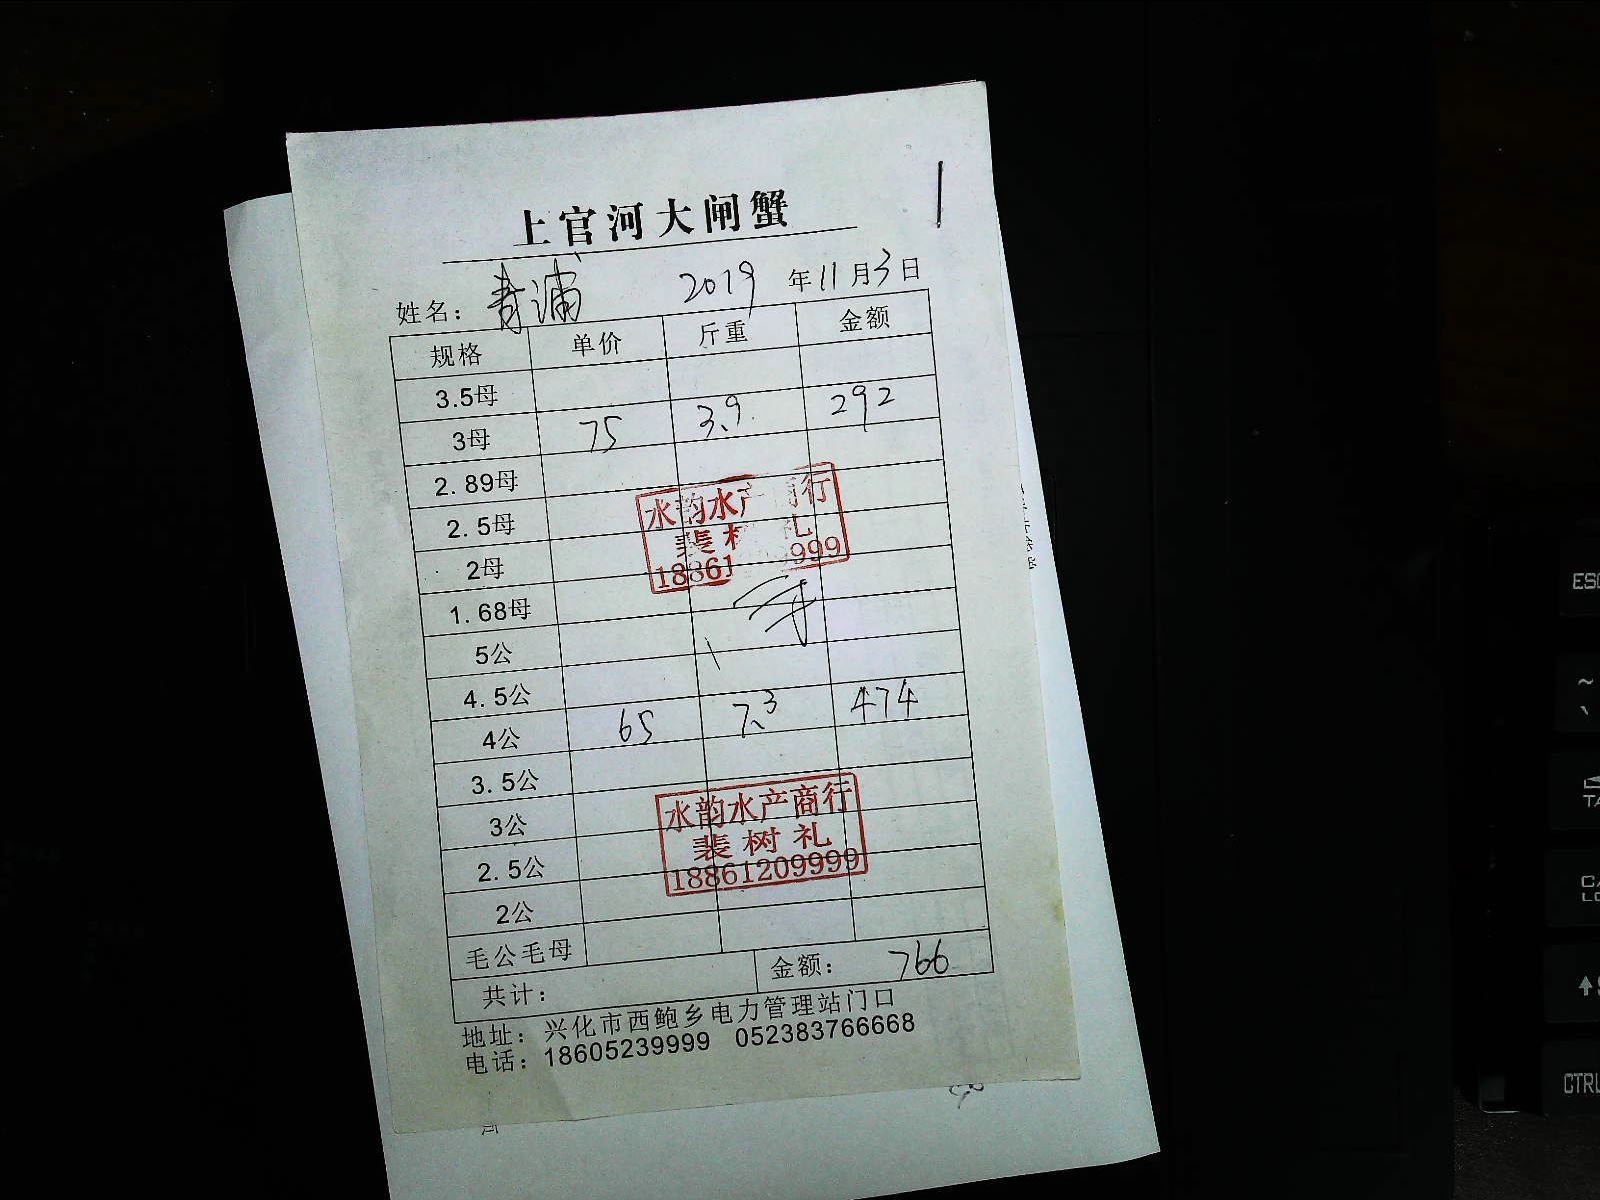 上官河大闸蟹
姓名：青浦 2019年11月3日
规格 单价 斤重 金额
3.5母
3母 75 3.9 292
2.89母
2.5母
2母
1.68母
5公
4.5公
4公 65 7.3 474
3.5公
3公
2.5公
2公
毛公毛母
共计： 金额：766
地址：兴化市西鲍乡电力管理站门口
电话：18605239999 052383766668
水韵水产商行
裴树礼
18861209999
水韵水产商行
裴 礼
18861 9999
ESC
~
CTRL